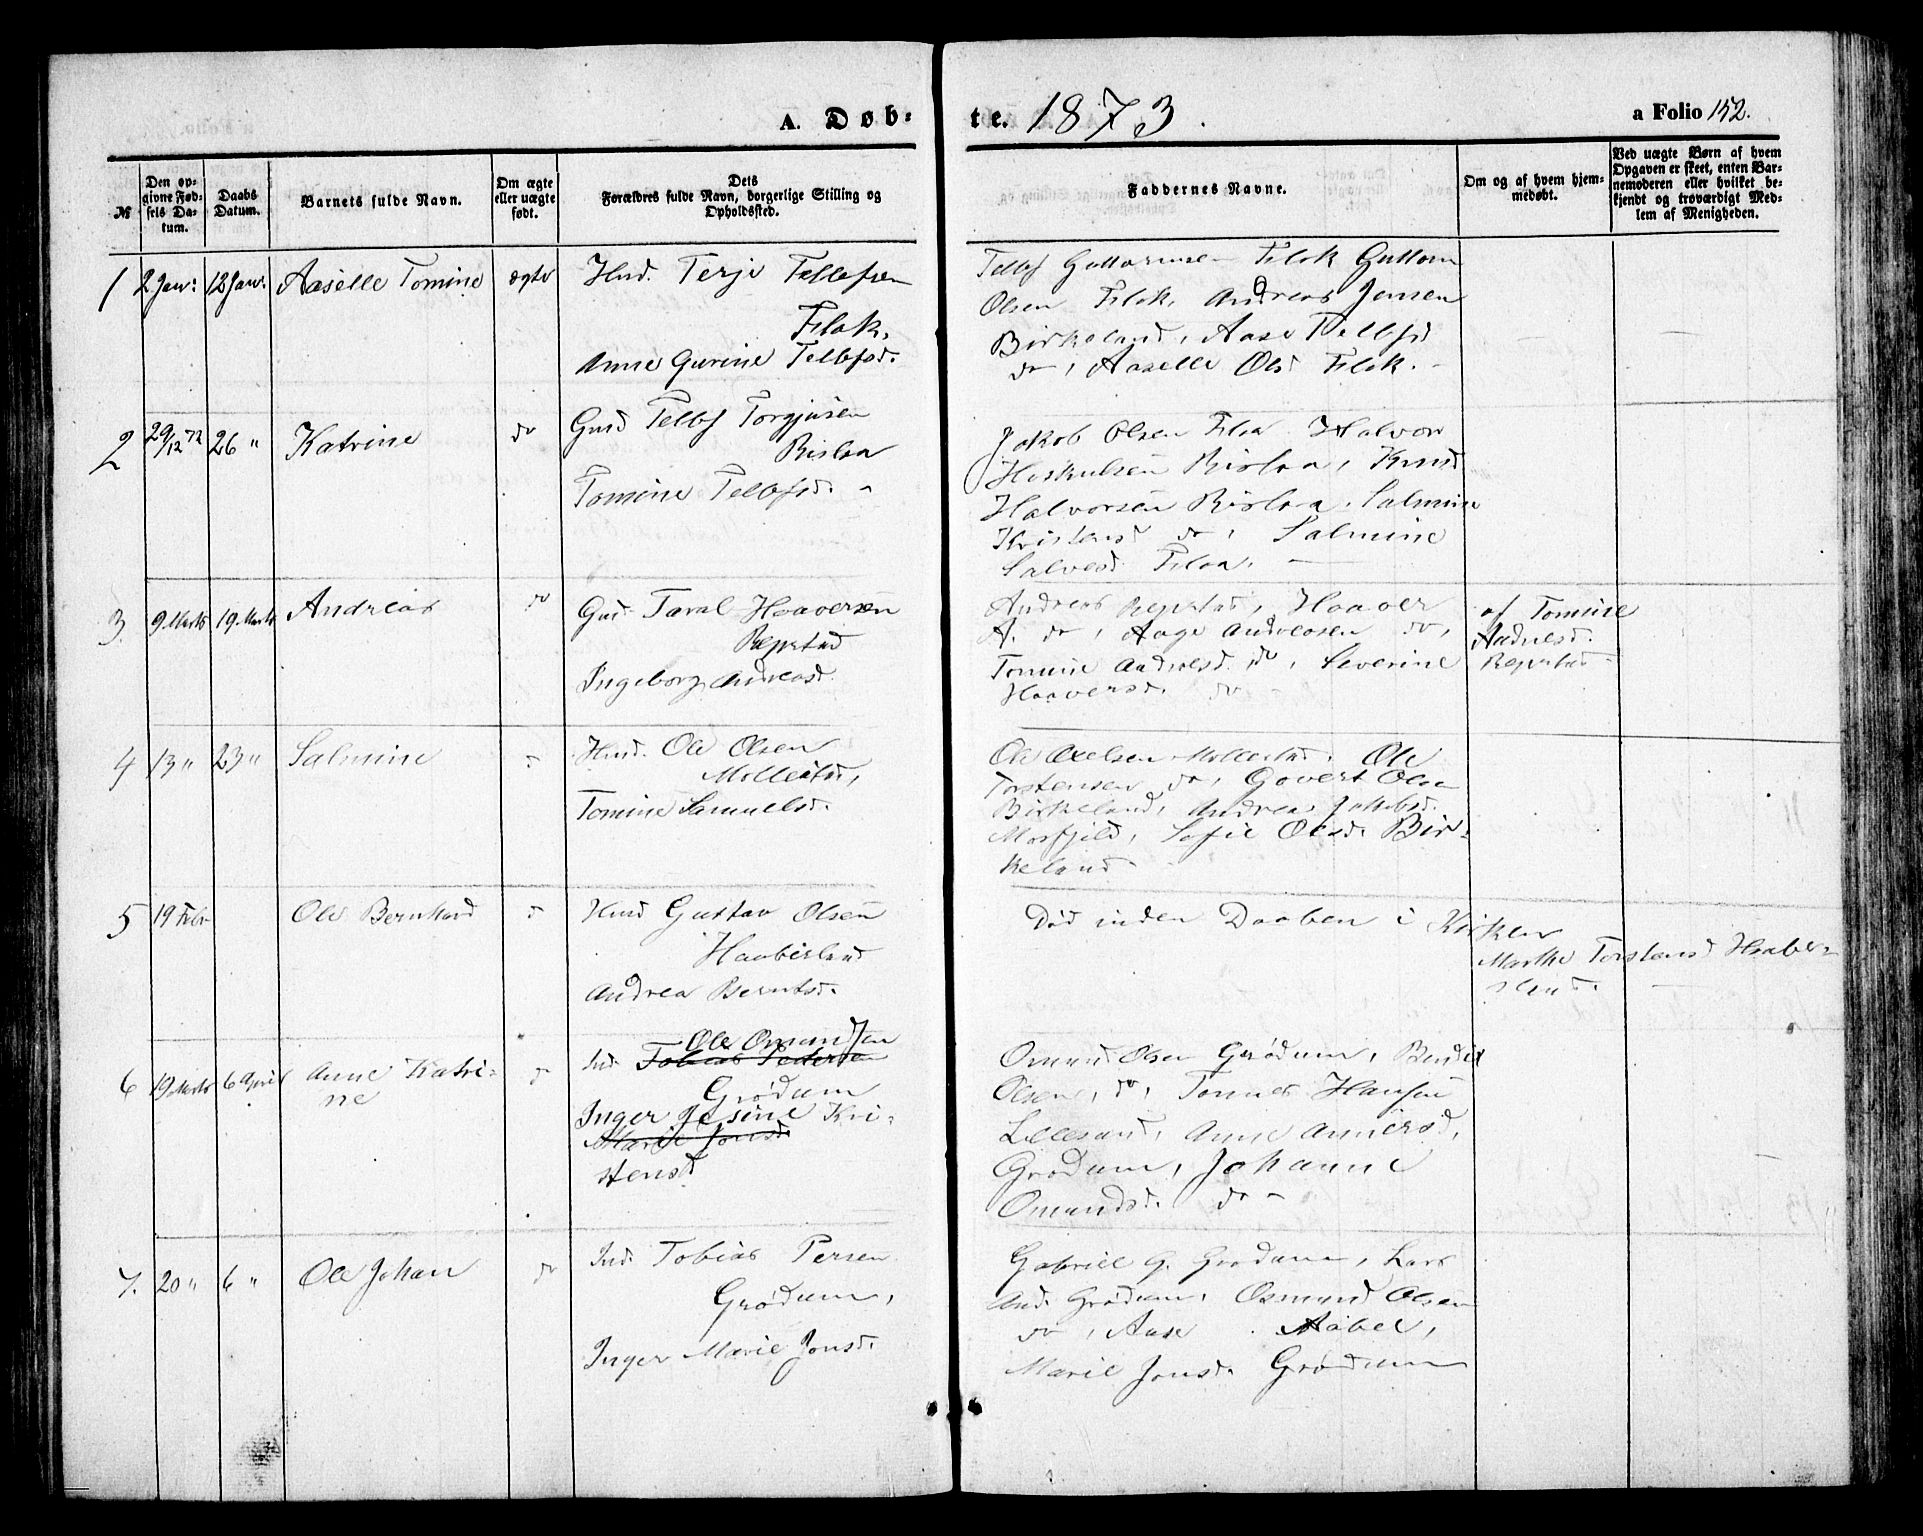 A. Døb-
te. 1873.
a Folio 152.
№
Den op-
givne Fød-
sels Da-
tum.
Daabs
Datum.
Barnets fulde Navn.
Om ægte
eller uægte
født.
Dets
Forældres fulde Navn, borgerlige Stilling og
Opholdssted.
Faddernes Navne.
Om og af hvem hjem-
medøbt.
Ved uægte Børn af hvem
Opgaven er skeet, enten Bar-
nemoderen eller hvilket be-
kjendt og troværdigt Med-
lem af Menigheden.
1 2 Janr: 12 Janr: Aaselle Tomine ægte
Husd. Terje Tellefsen
Flak,
Anne Gurine Tellefsd.
Tellef Guttormsen Flak Guttom
Olsen Flak, Andreas Jensen
Birkeland, Aase Tellefsd
do, Aaselle Olsd Flak. -
2 29/12 72 26 " Katrine do
Gusd Tellef Torgjusen
Rislaa
Tomine Tellefsd. "
Jakob Olsen Flaa Halvor
Hoskulsen Rislaa, Knud
Halvorsen Rislaa, Salmine
Kristensd do, Salmine
Salvesd Flaa, -
3. 9 Marts 19 Marts Andreas do
Gusd Taral Haaversen
Repstad
Ingeborg Andreasd.
Andreas Repstad, Haaver
A. do, Aage Andreasen do,
Tomine Andreasd. do, Severine
Haaversd. do -
af Tomine
Andresd.
Repstad -
4 13 " 23 " Salmine "
Husd. Ole Olsen
Mollestad,
Tomine Samuelsd.
Ole Axelsen Mollestad. Ole
Torstensen do, Govert Olsen
Birkeland, Andrea Jakobsd.
Mosfjeld, Sofie Olsd. Bir-
keland
5 19 Febr Ole Bernhard d
Husd Gustav Olsen
Haabesland
Andrea Berntsd.
Død inden Daaben i Kirken
Marthe Torstensd Haabes-
land. -
6 19 Marts 6 April Anne Katri-
ne d
Ole Omundsen
Ind Tobias Pedersen
Grødum
Inger Jesine Kri-
Marie Jonsd
stensd
Omund Olsen Grødum, Bendix
Olsen, do, Tønnes Hansen
Lillesand, Anne Annersd,
Grødum, Johanne
Omundsd. do -
7. 20 " 6 " Ole Johan do
Ind Tobias Persen
Grødum,
Inger Marie Jonsd.
Gabriel G. Grødum, Lars
And. Grødum, Osmund Olsen
do, Aase Aabel,
Marie Jonsd. Grødum